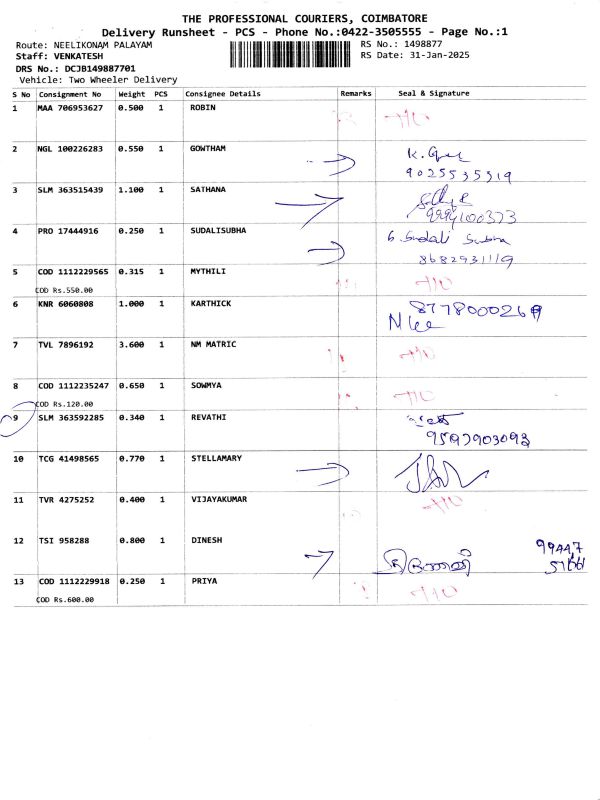 THE PROFESSIONAL COURIERS, COIMBATORE
Delivery Runsheet - PCS - Phone No.:0422-3505555 - Page No.:1
Route: NEELIKONAM PALAYAM
RS No.: 1498877
Staff: VENKATESH
RS Date: 31-Jan-2025
DRS No.: DCJB149887701
Vehicle: Two Wheeler Delivery
S No Consignment No Weight PCS Consignee Details Remarks Seal & Signature
1 MAA 706953627 0.500 1 ROBIN
2 NGL 100226283 0.550 1 GOWTHAM
9025535519
3 SLM 363515439 1.100 1 SATHANA
9994100373
4 PRO 17444916 0.250 1 SUDALISUBHA G. Sudali Subha
8682931119
5 COD 1112229565 0.315 1 MYTHILI
COD Rs.550.00
6 KNR 6060808 1.000 1 KARTHICK
7 TVL 7896192 3.600 1 NM MATRIC
8 COD 1112235247 0.650 1 SOWMYA
COD Rs.120.00
9 SLM 363592285 0.340 1 REVATHI
10 TCG 41498565 0.770 1 STELLAMARY
11 TVR 4275252 0.400 1 VIJAYAKUMAR
12 TSI 958288 0.800 1 DINESH
13 COD 1112229918 0.250 1 PRIYA
COD Rs.600.00